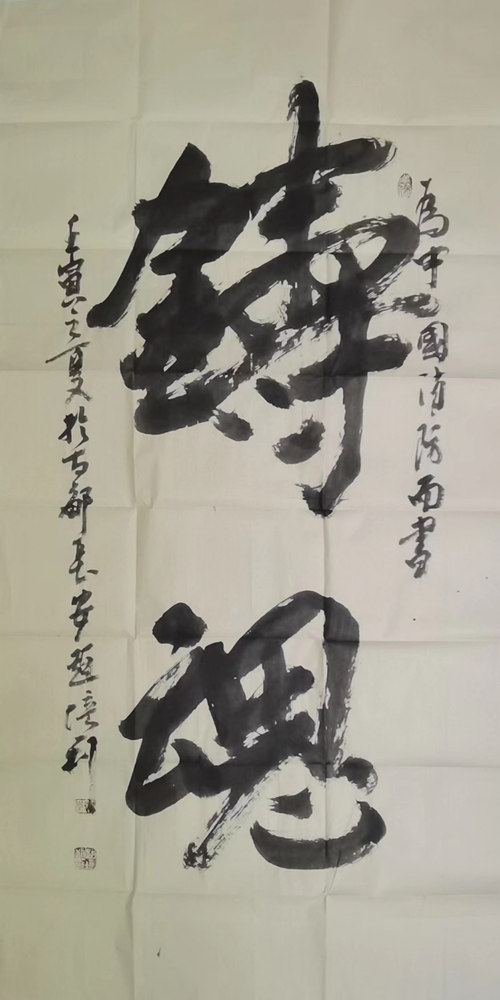 為中國消防而書
鑄魂
壬寅之夏於古都長安培利